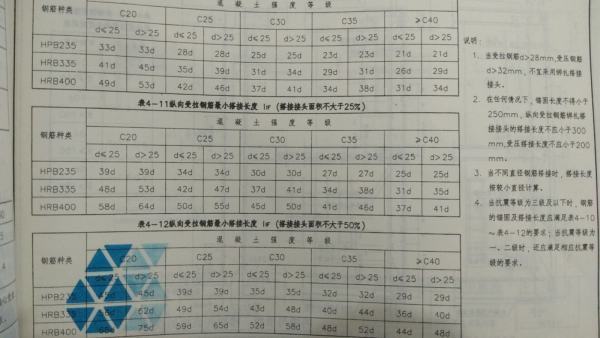 钢筋种类 混凝土强度等级
C20 C25 C30 C35 ≥C40
d≤25 d>25 d≤25 d>25 d≤25 d>25 d≤25 d>25 d≤25 d>25
HPB235 33d 33d 28d 28d 25d 25d 23d 23d 21d 21d
HRB335 41d 45d 35d 39d 31d 34d 29d 31d 26d 29d
HRB400 49d 53d 42d 46d 37d 41d 34d 38d 31d 34d
表4-11纵向受拉钢筋最小搭接长度 lₗF (搭接接头面积不大于25%)
钢筋种类 混凝土强度等级
C20 C25 C30 C35 ≥C40
d≤25 d>25 d≤25 d>25 d≤25 d>25 d≤25 d>25 d≤25 d>25
HPB235 39d 39d 34d 34d 30d 30d 27d 27d 25d 25d
HRB335 48d 53d 42d 47d 37d 41d 34d 38d 31d 35d
HRB400 58d 64d 50d 55d 45d 50d 41d 46d 37d 41d
表4-12纵向受拉钢筋最小搭接长度 lₗF (搭接接头面积不大于50%)
钢筋种类 混凝土强度等级
C20 C25 C30 C35 ≥C40
d≤25 d>25 d≤25 d>25 d≤25 d>25 d≤25 d>25 d≤25 d>25
HPB235 45d 45d 39d 39d 35d 35d 32d 32d 29d 29d
HRB335 62d 49d 54d 43d 48d 40d 44d 36d 40d
HRB400 68d 75d 59d 65d 52d 58d 48d 52d 44d 48d
说明:
1. 当受拉钢筋d>28mm,受压钢筋
d>32mm,不宜采用绑扎搭接
接头。
2. 在任何情况下,锚固长度不得小于
250mm,纵向受拉钢筋绑扎搭
接接头的搭接长度不应小于300
mm,受压搭接长度不应小于200
mm。
3. 当不同直径钢筋搭接时,搭接长度
按较小直径计算。
4. 当抗震等级为三级及以下时,钢筋
的锚固及搭接长度应满足表4-10
~表4-12的要求;当抗震等级为
一、二级时,还应满足相应抗震等
级的要求。